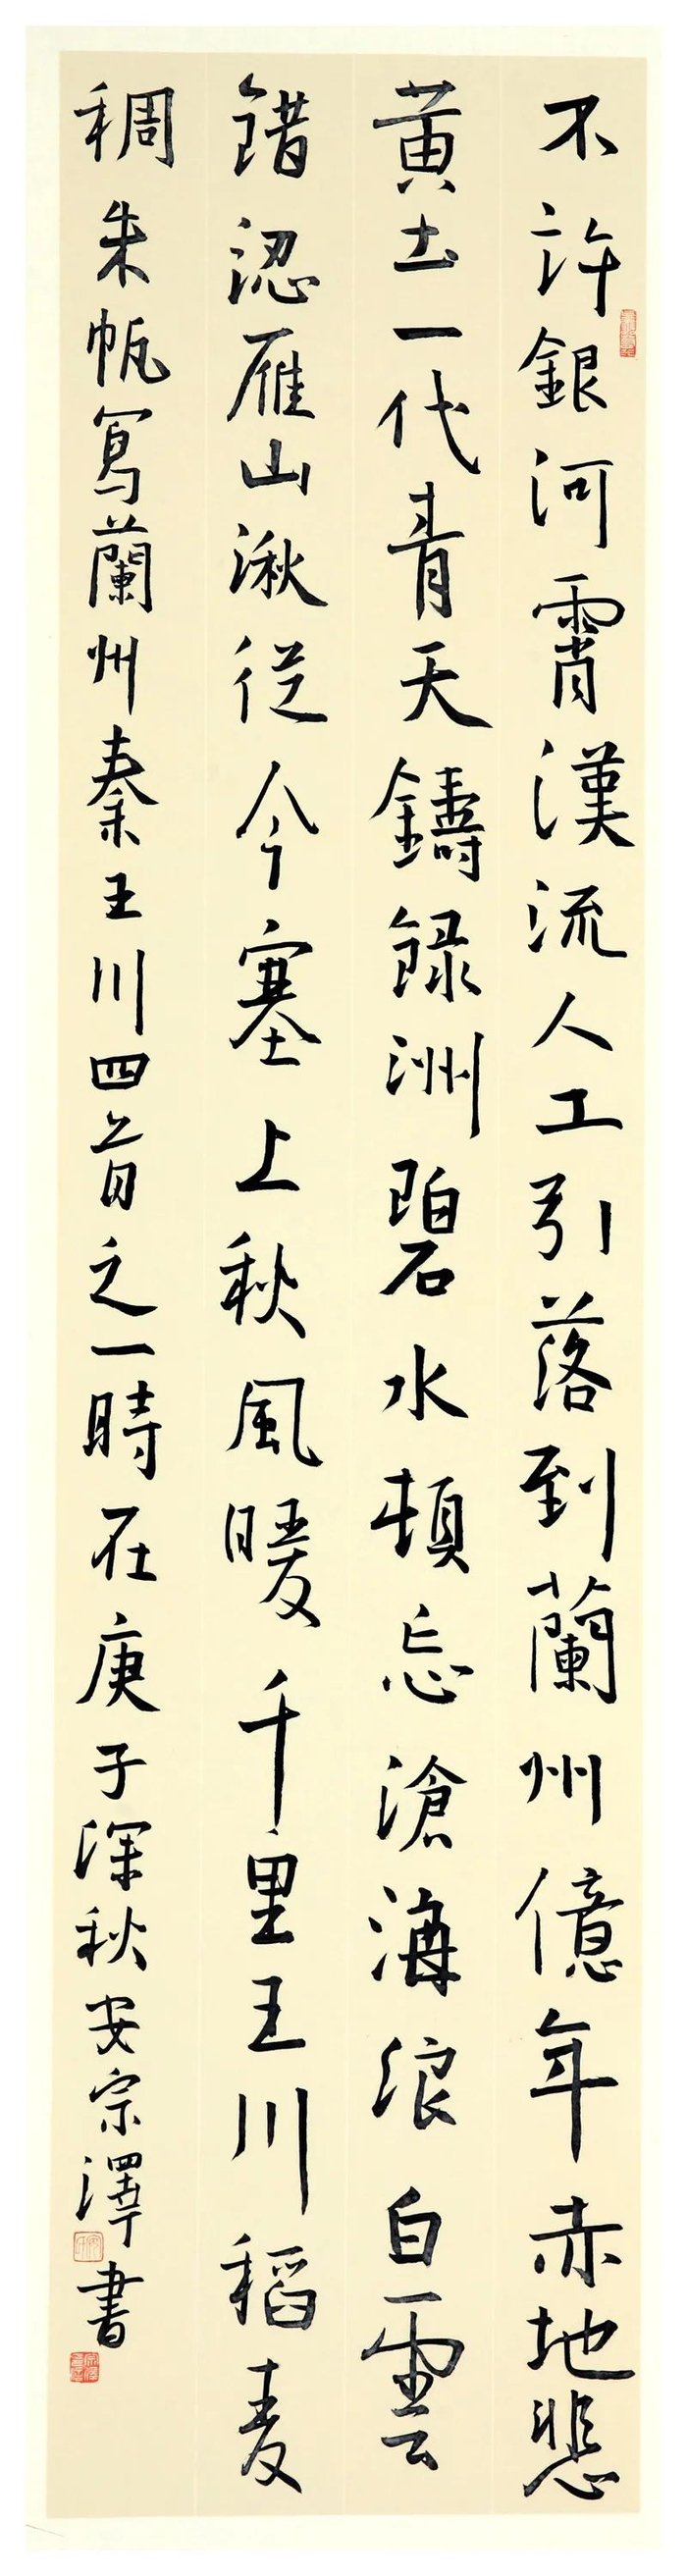 不許銀河霄漢流人工引落到蘭州億年赤地悲
黃土一代青天鑄録洲碧水頓忘滄海浪白雲
錯認雁山湫從今塞上秋風暖千里王川稻麦
稠朱帆寫蘭州秦王川四首之一時在庚子深秋安宗澤書